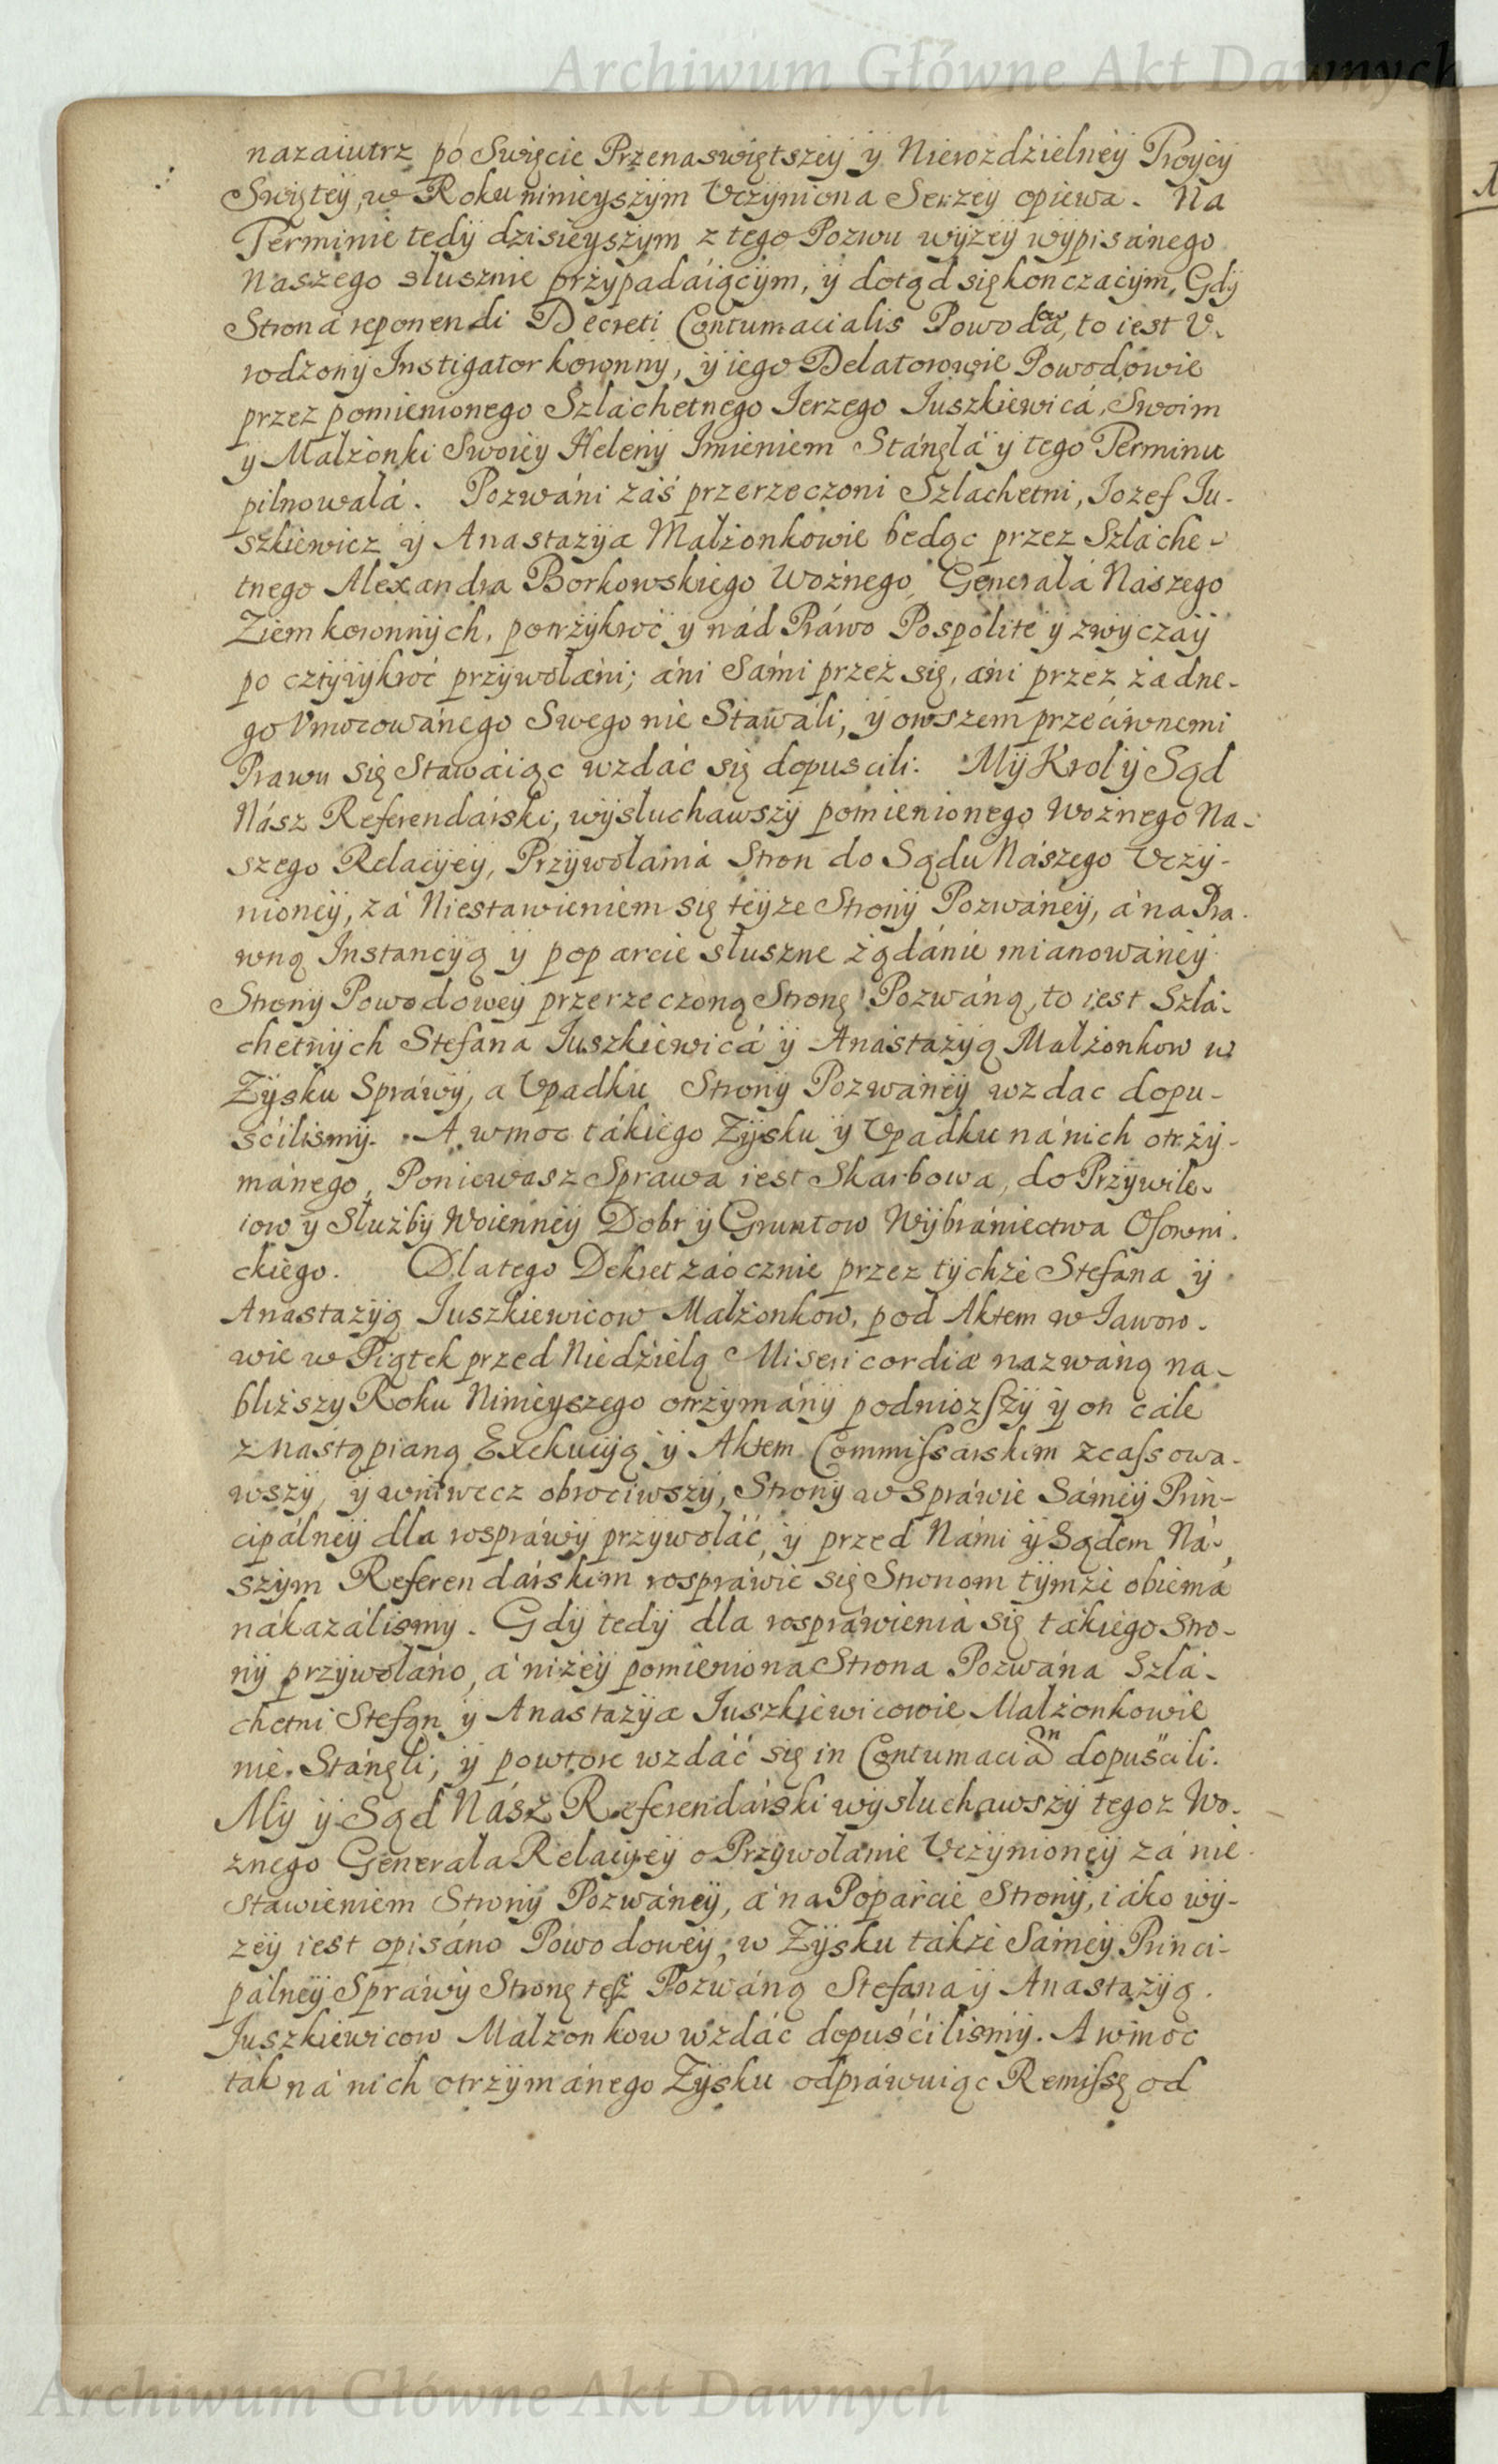 Archiwum Główne Akt Dawnych
nazaiutrz po Swięcie Przenaswiętszey y Nierozdzielney Troycy
Swiętey, w Roku ninieyszym Vczyniona Serzey opiewa. Na
Terminie tedy dzisieyszym z tego Pozwu wyzey wypisánego
Naszego słusznie przypadáiącym, y dotąd się konczacym, Gdy
Stroná reponendi Decreti Contumacialis Powodowa, to iest V-
rodzony Instigator koronny, y iego Delatorowie Powodowie
przez pomienionego Szlachetnego Ierzego Iuszkiewicá, Swoim
y Małżonki Swoiey Heleny Imieniem Stánęłá y tego Terminu
pilnowałá. Pozwáni záś przerzeczoni Szlachetni, Iozef Iu-
szkiewicz y Anastazya Małżonkowie bedąc przez Szlache-
tnego Alexandra Borkowskiego Woźnego Generałá Nászego
Ziem koronnych, potrzykroć y nád Práwo Pospolite y zwyczay
po cztyrykroć przywołáni; áni Sámi przez się, áni przez żadne-
go Vmocowánego Swego nie Stawáli, y owszem przeciwnemi
Prawu się Stawáiąc wzdáć się dopuscili. My Krol y Sąd
Nász Referendárski, wysłuchawszy pomienionego Woźnego Na-
szego Relacyey, Przywołaniá Stron do Sądu Nászego Vczy-
nioney, zá Niestawieniem się teyze Strony Pozwáney, á na Pra-
wną Instancyą y poparcie słuszne żądánie mianowáney
Strony Powodowey przerzeczoną Stronę Pozwáną, to iest Szlá-
chetnych Stefana Iuszkiewicá y Anástázyą Małżonkow w
Zysku Spráwy, a Vpadku Strony Pozwáney wzdac dopu-
śćilismy. A wmoc tákiego Zysku y Vpadku ná nich otrzy-
mánego, Poniewasz Sprawa iest Skarbowa, do Przywile-
iow y Służby Woienney Dobr y Gruntow Wybrániectwa Osowni-
ckiego. Dlatego Dekret záocznie przez tychże Stefana y
Anastazyą Iuszkiewicow Małżonkow, pod Aktem w Iaworo-
wie w Piątek przed Niedzielą Misericordiæ nazwáną na-
bliższy Roku Ninieyszego otrzymány podniozszy y on cále
z nástąpianą Exekucyą y Aktem Commissárskim zcassowa-
wszy, y wniwecz obrociwszy, Strony w Spráwie Sámey Prin-
cipálney dla rospráwy przywołáć, y przed Námi y Sądem Ná-
szym Referendárskim rospráwic się Stronom tymże obiema
nákazálismy. Gdy tedy dla rospráwienia się tákiego Stro-
ny przywołáno, á niżey pomieniona Strona Pozwána Szlá-
chetni Stefan y Anastazya Iuszkiewicowie Małżonkowie
nie Stánęli, y powtore wzdáć się in Contumaciam dopuscili.
My y Sąd Nász Referendárski wysłuchawszy tegoz Wo-
znego Generała Relacyey o Przywołanie Vczynioney zá nie
stawieniem Strony Pozwáney, á na Popárcie Strony, iáko wy-
zey iest opisáno Powodowey, w Zysku tákże Sámey Princi-
pálney Spráwy Stronę tesz Pozwáną Stefana y Anastazyą
Iuszkiewicow Małzonkow wzdác dopuśćilismy. A wmoc
ták ná nich otrzymánego Zysku odpráwuiąc Remissę od
Archiwum Główne Akt Dawnych